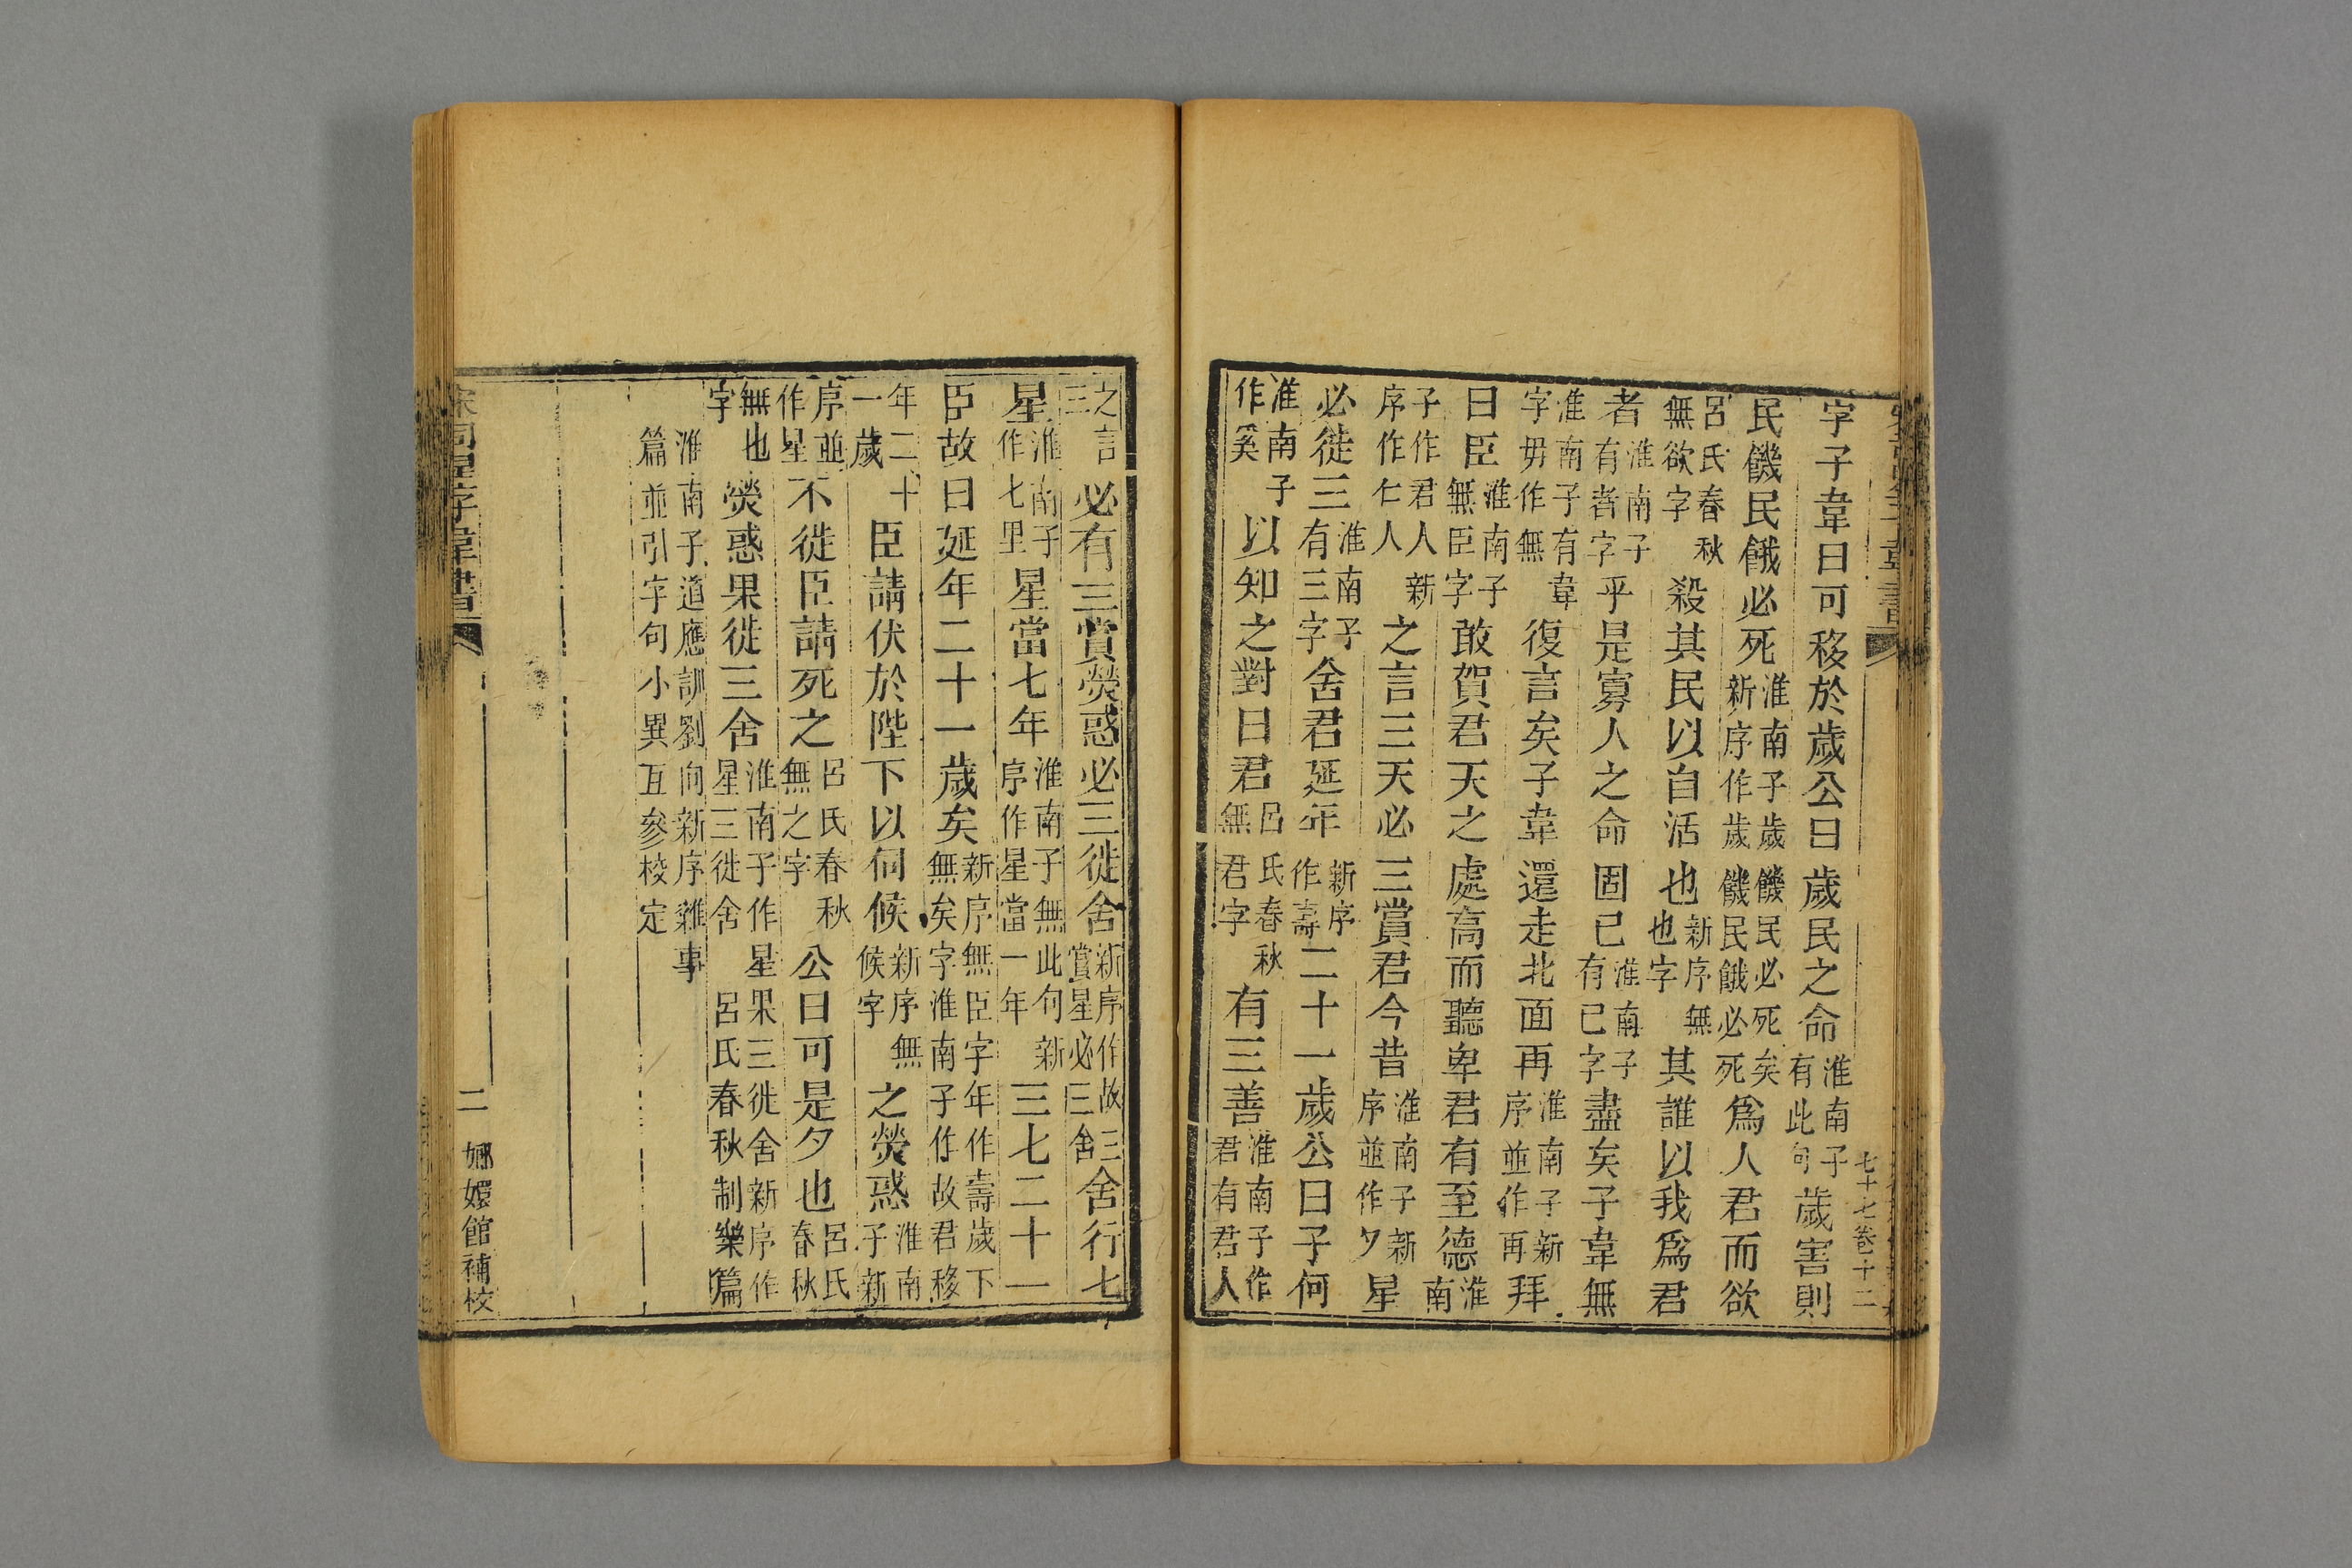 字子韋曰可移於歲公曰歲民之命淮南子有此句歲害則
民饑民餓必死淮南子歲饑民必死矣新序作歲饑民餓必死爲人君而欲
呂氏春秋無欲字殺其民以自活也新序無也字其誰以我爲君
者淮南子有者字乎是寡人之命固已淮南子有已字盡矣子韋無
淮南子有韋字毋作無復言矣子韋還走北面再淮南子新序並作再拜
曰臣淮南子無臣字敢賀君天之處高而聽卑君有至德淮南
子作君人新序作仁人之言三天必三賞君今昔淮南子新序並作夕星
必徙三淮南子有三字舍君延年新序作壽二十一歲公曰子何
淮南子作奚以知之對曰君呂氏春秋無君字有三善淮南子作君有君人
之言三必有三賞熒惑必三徙舍新序作故三賞星必三舍舍行七
星淮南子作七里星當七年淮南子無此句新序作星當一年三七二十一
臣故曰延年二十一歲矣新序無臣字年作壽歲下無矣字淮南子作故君移
年二十一歲臣請伏於陛下以伺候新序無候字之熒惑淮南子新
序並作星不徙臣請死之呂氏春秋無之字公曰可是夕也呂氏春秋
無也字熒惑果徙三舍淮南子作星果三徙舍新序作星三徙舍呂氏春秋制樂篇
淮南子道應訓劉向新序雜事篇並引字句小異互參校定
宋司星子韋書
二
嫏嬛館補校
七十七卷十二